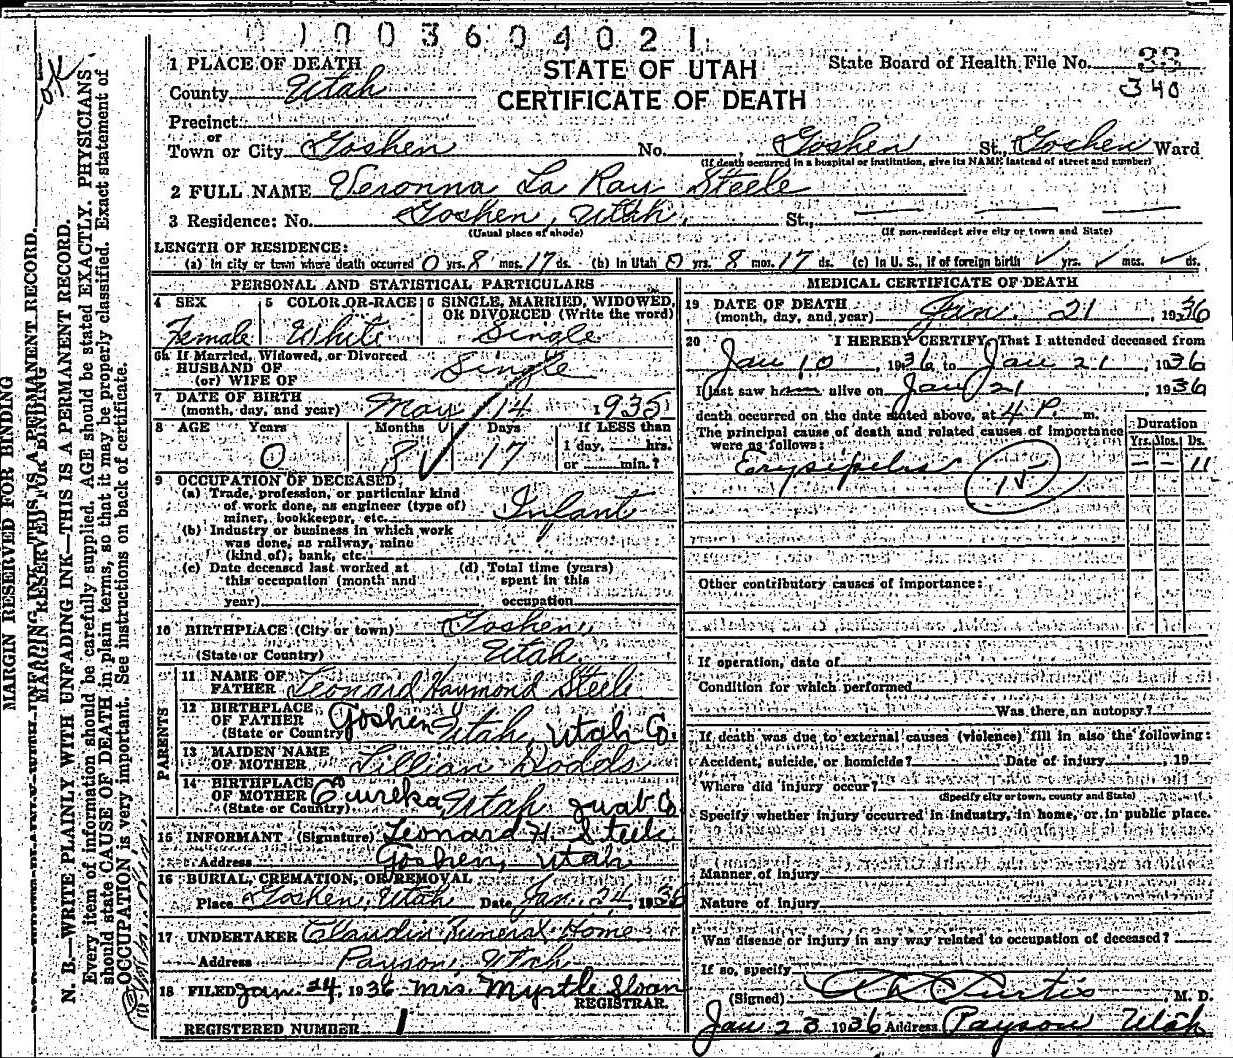 01003604021
1 PLACE OF DEATH
STATE OF UTAH
State Board of Health File No. 33
County Utah
CERTIFICATE OF DEATH
340
Precinct
or
Town or City Goshen No. , Goshen St., Goshen Ward
(If death occurred in a hospital or institution, give its NAME instead of street and number)
2 FULL NAME Veronna La Ray Steele
3 Residence: No. Goshen, Utah, St.,
(Usual place of abode) (If non-resident give city or town and State)
LENGTH OF RESIDENCE:
(a) In city or town where death occurred 0 yrs. 8 mos. 17 ds. (b) In Utah 0 yrs. 8 mos. 17 ds. (c) In U. S., if of foreign birth ✓ yrs. ✓ mos. ✓ ds.
PERSONAL AND STATISTICAL PARTICULARS
4 SEX 5 COLOR OR RACE 6 SINGLE, MARRIED, WIDOWED, OR DIVORCED (Write the word)
Female White Single
6a If Married, Widowed, or Divorced
HUSBAND OF
(or) WIFE OF Single
7 DATE OF BIRTH
(month, day, and year) May 14 1935
8 AGE Years Months Days If LESS than
0 8 17 1 day, hrs.
or min.?
9 OCCUPATION OF DECEASED
(a) Trade, profession, or particular kind
of work done, as engineer (type of)
miner, bookkeeper, etc. Infant
(b) Industry or business in which work
was done, as railway, mine
(kind of); bank, etc.
(c) Date deceased last worked at
this occupation (month and
year)
(d) Total time (years)
spent in this
occupation
10 BIRTHPLACE (City or town) Goshen,
(State or Country) Utah
PARENTS
11 NAME OF
FATHER Leonard Haymond Steele
12 BIRTHPLACE
OF FATHER
(State or Country) Goshen Utah, Utah Co.
13 MAIDEN NAME
OF MOTHER Lillian Dodds
14 BIRTHPLACE
OF MOTHER
(State or Country) Eureka Utah Juab Co
15 INFORMANT (Signature) Leonard H. Steele
Address Goshen, Utah
16 BURIAL, CREMATION, OR REMOVAL
Place Goshen, Utah Date Jan. 24, 1936
17 UNDERTAKER Claudin Funeral Home
Address Payson, Utah
18 FILED Jan. 24, 1936 Mrs. Myrtle Sloan
REGISTRAR.
REGISTERED NUMBER 1
MEDICAL CERTIFICATE OF DEATH
19 DATE OF DEATH
(month, day, and year) Jan. 21, 1936
20 I HEREBY CERTIFY, That I attended deceased from
Jan 10, 1936, to Jan 21, 1936
I last saw h alive on Jan 21, 1936
death occurred on the date stated above, at 4 P. m.
The principal cause of death and related causes of importance
were as follows:
Duration
Yrs. Mos. Ds.
Erysipelas 15 — — 11
Other contributory causes of importance:
If operation, date of
Condition for which performed
Was there an autopsy?
If death was due to external causes (violence) fill in also the following:
Accident, suicide, or homicide? Date of injury , 19
Where did injury occur?
(Specify city or town, county and State)
Specify whether injury occurred in industry, in home, or in public place.
Manner of injury
Nature of injury
Was disease or injury in any way related to occupation of deceased?
If so, specify
(Signed) Curtis, M. D.
Jan 23 1936 Address Payson Utah
MARGIN RESERVED FOR BINDING
MARGIN RESERVED FOR BINDING
N. B.—WRITE PLAINLY WITH UNFADING INK—THIS IS A PERMANENT RECORD.
Every item of information should be carefully supplied. AGE should be stated EXACTLY. PHYSICIANS
should state CAUSE OF DEATH in plain terms, so that it may be properly classified. Exact statement of
OCCUPATION is very important. See instructions on back of certificate.
OK